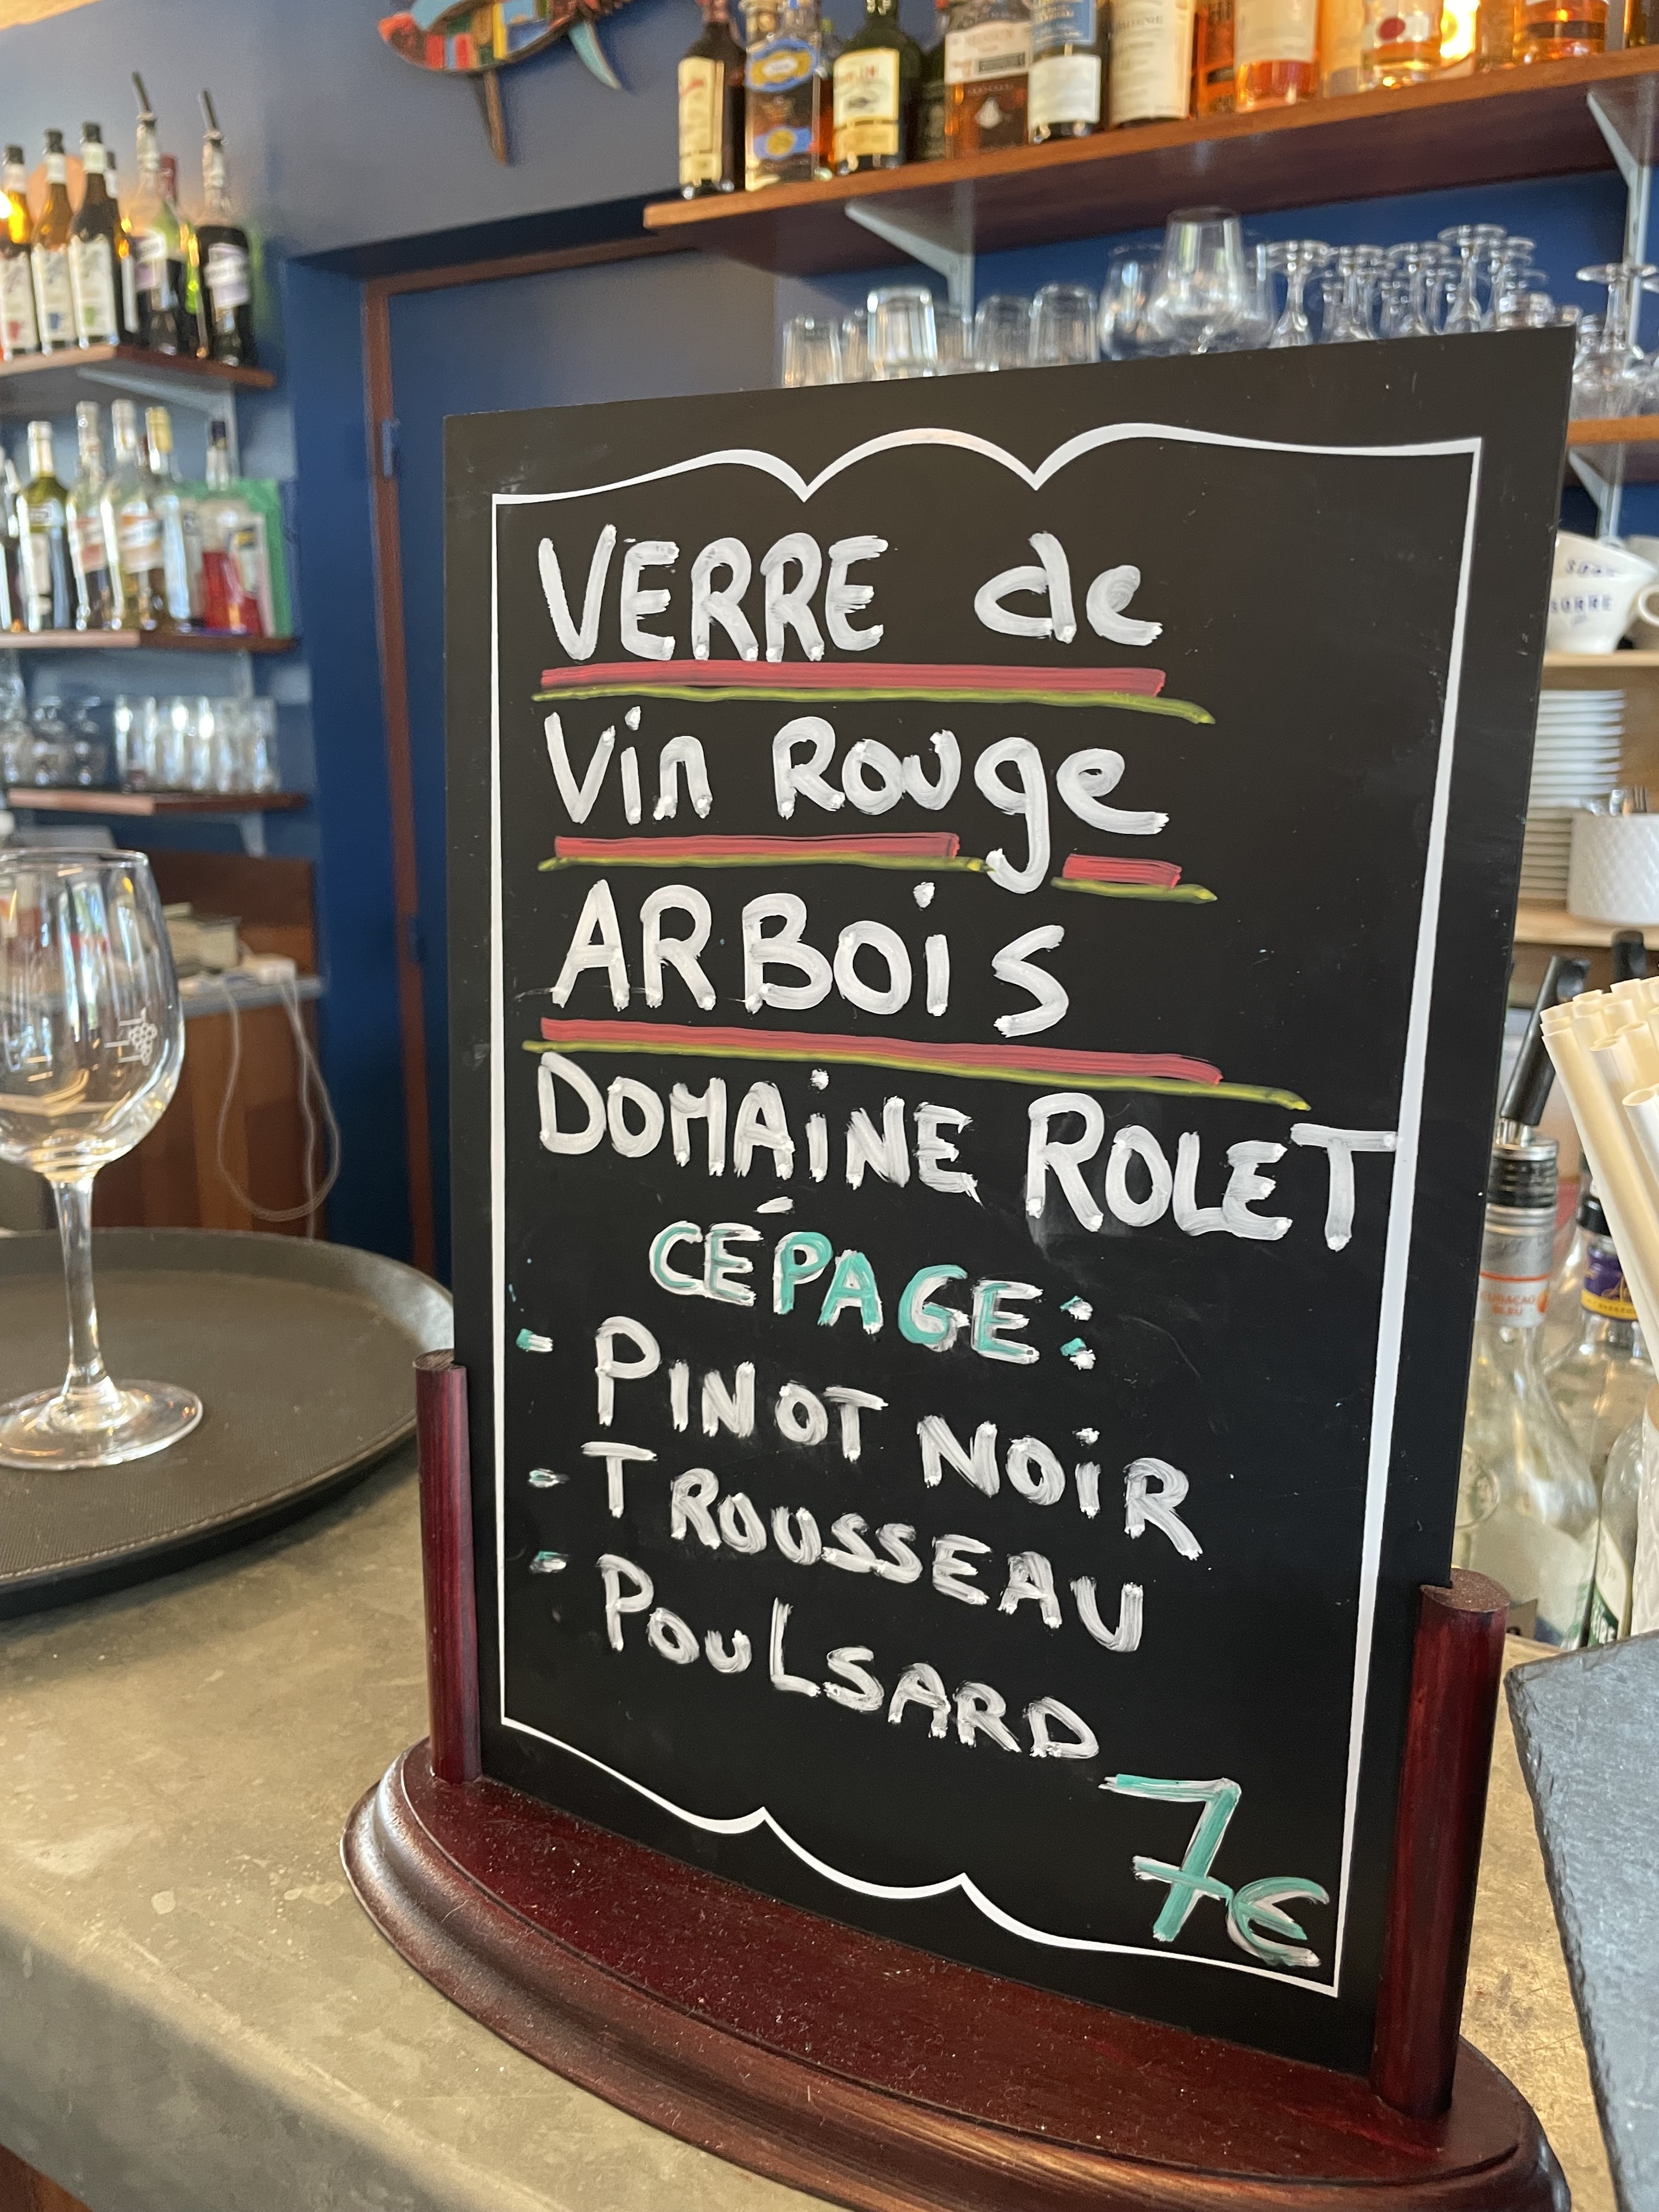 VERRE de
Vin Rouge
ARBOiS
DOMAiNE ROLET
CÉPAGE:
- PINOT NOiR
- TROUSSEAU
- PouLSARD
7€
CURAÇAO
BLEU